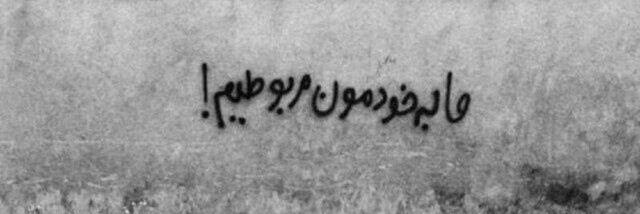 ما به خودمون مربوطیم!